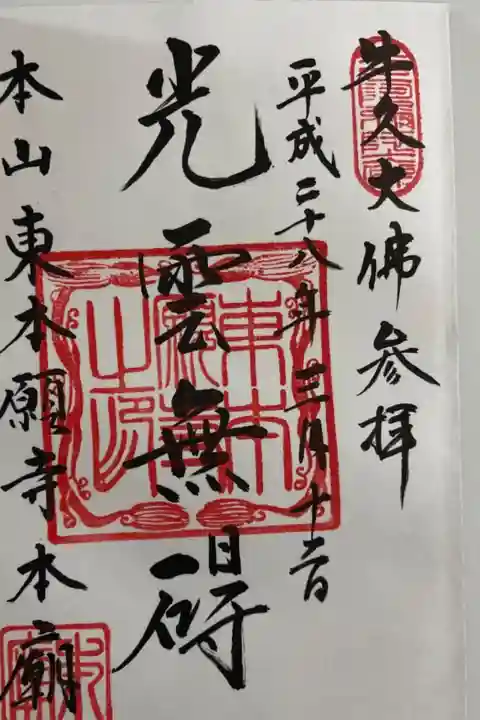 牛久大佛参拝
平成二十八年三月十二日
光雲無碍
東本願寺之印
本山東本願寺本廟